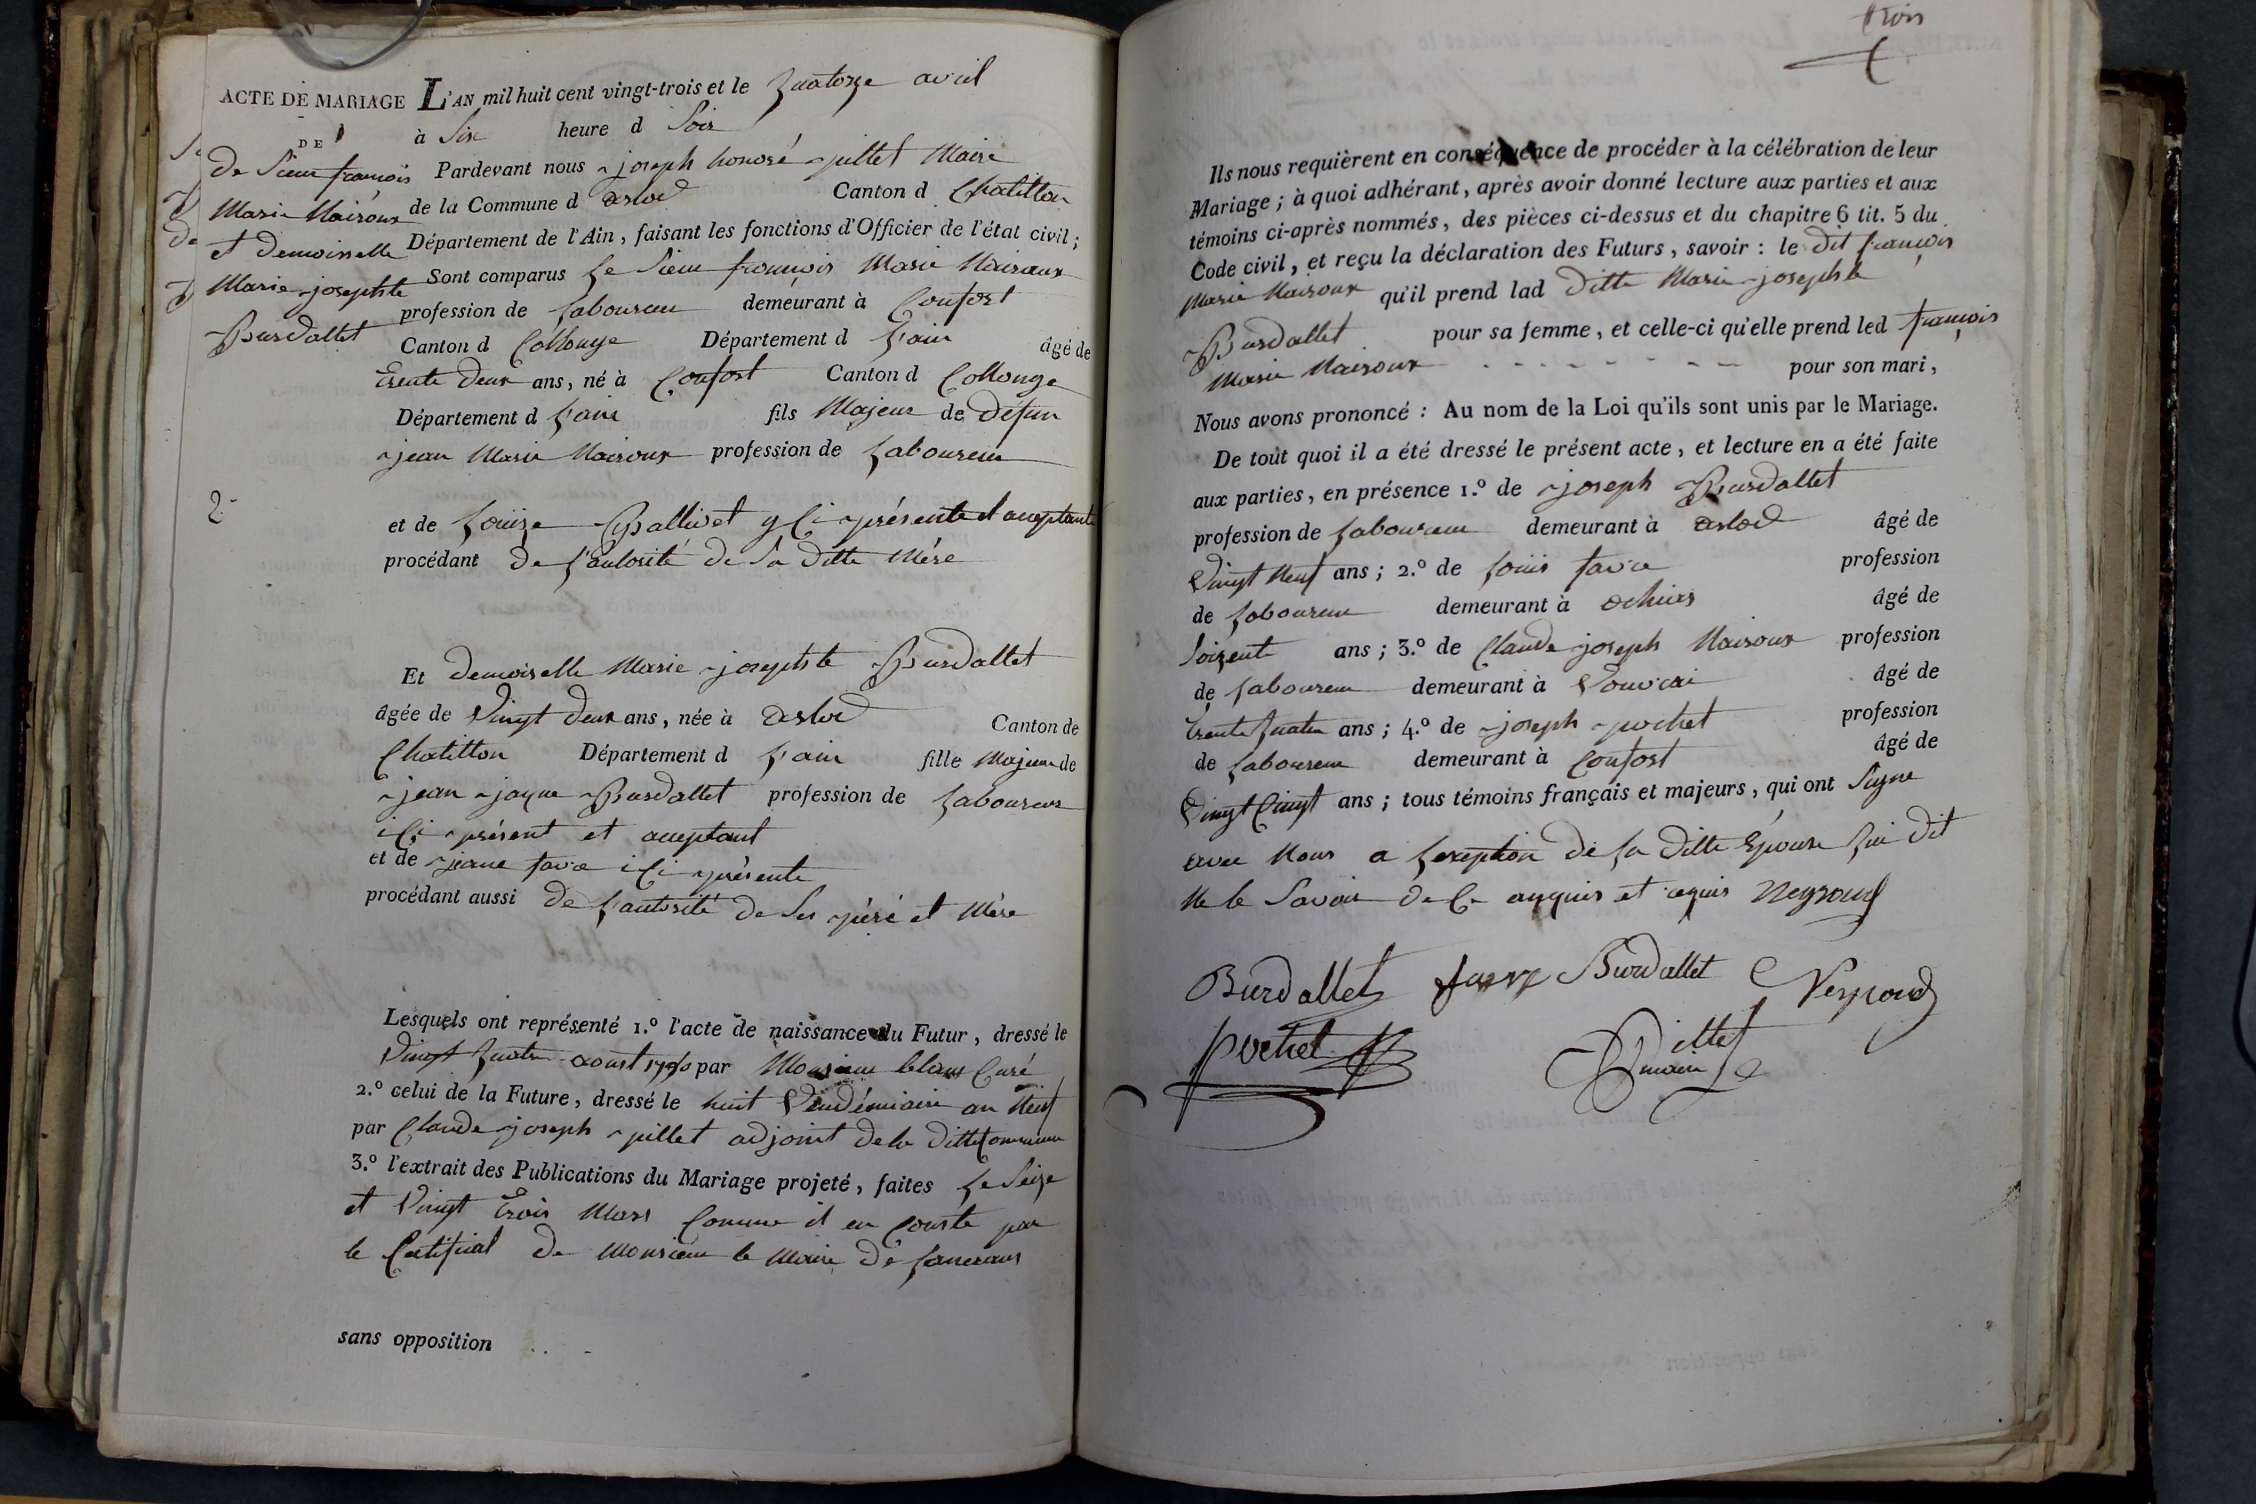 ACTE DE MARIAGE
DE
de Sieur françois
Marie Nairoux
et demoisselle
Marie josephte
Burdallet
L'AN mil huit cent vingt-trois et le quatorze avril
à Six heure d Soir
Pardevant nous joseph honoré pillet Maire
de la Commune d arlod Canton d Chatillon
Département de l'Ain, faisant les fonctions d'Officier de l'état civil;
Sont comparus Le Sieur françois Marie Nairoux
profession de Laboureur demeurant à Confort
Canton d Collonge Département d L'ain âgé de
trente deux ans, né à Confort Canton d Collonge
Département d L'ain fils Majeur de defun
jean Marie Nairoux profession de Laboureur
2
et de Louise Ballivet y Ci présente et aceptante
procédant de L'autorité de Sa ditte Mére
Et demoiselle Marie josephte Burdallet
âgée de Vingt deux ans, née à arlod Canton de
Chatillon Département d L'ain fille Majeur de
jean jaque Burdallet profession de Laboureur
iCi présent et aceptant
et de jeane favre iCi présente
procédant aussi de L'autorité de Ses péré et Mère
Lesquels ont représenté 1.º l'acte de naissance du Futur, dressé le
Vingt quatre aoust 1790 par Monsieur blanc Curé
2.º celui de la Future, dressé le huit Vendémiaire an Neuf
par Claude joseph pillet adjoint de la ditte Commune
3.º l'extrait des Publications du Mariage projeté, faites Le Seize
et Vingt trois Mars Comme il en Conste par
le Certificat de Monsieur le Maire de Lancrans
sans opposition
trois
Ils nous requièrent en conséquence de procéder à la célébration de leur
Mariage; à quoi adhérant, après avoir donné lecture aux parties et aux
témoins ci-après nommés, des pièces ci-dessus et du chapitre 6 tit. 5 du
Code civil, et reçu la déclaration des Futurs, savoir: le dit françois
Marie Nairoux qu'il prend lad ditte Marie josephte
Burdallet pour sa femme, et celle-ci qu'elle prend led françois
Marie Nairoux - - - - - - - pour son mari,
Nous avons prononcé: Au nom de la Loi qu'ils sont unis par le Mariage.
De tout quoi il a été dressé le présent acte, et lecture en a été faite
aux parties, en présence 1.º de joseph Burdallet
profession de Laboureur demeurant à arlod âgé de
Vingt Neuf ans; 2.º de Louis favre profession
de Laboureur demeurant à ochias âgé de
Soizente ans; 3.º de Claude joseph Nairoux profession
de Laboureur demeurant à Vouvrai âgé de
trente quatre ans; 4.º de joseph pochet profession
de Laboureur demeurant à Confort âgé de
Vingt Cinqt ans; tous témoins français et majeurs, qui ont Signe
avec Nous a Lexeption de La ditte Epouse qui dit
Ne le Savoir de Ce anquis et requis Neyroud
Burdallet favre Burdallet Neyroud
pochet Pillet
maire